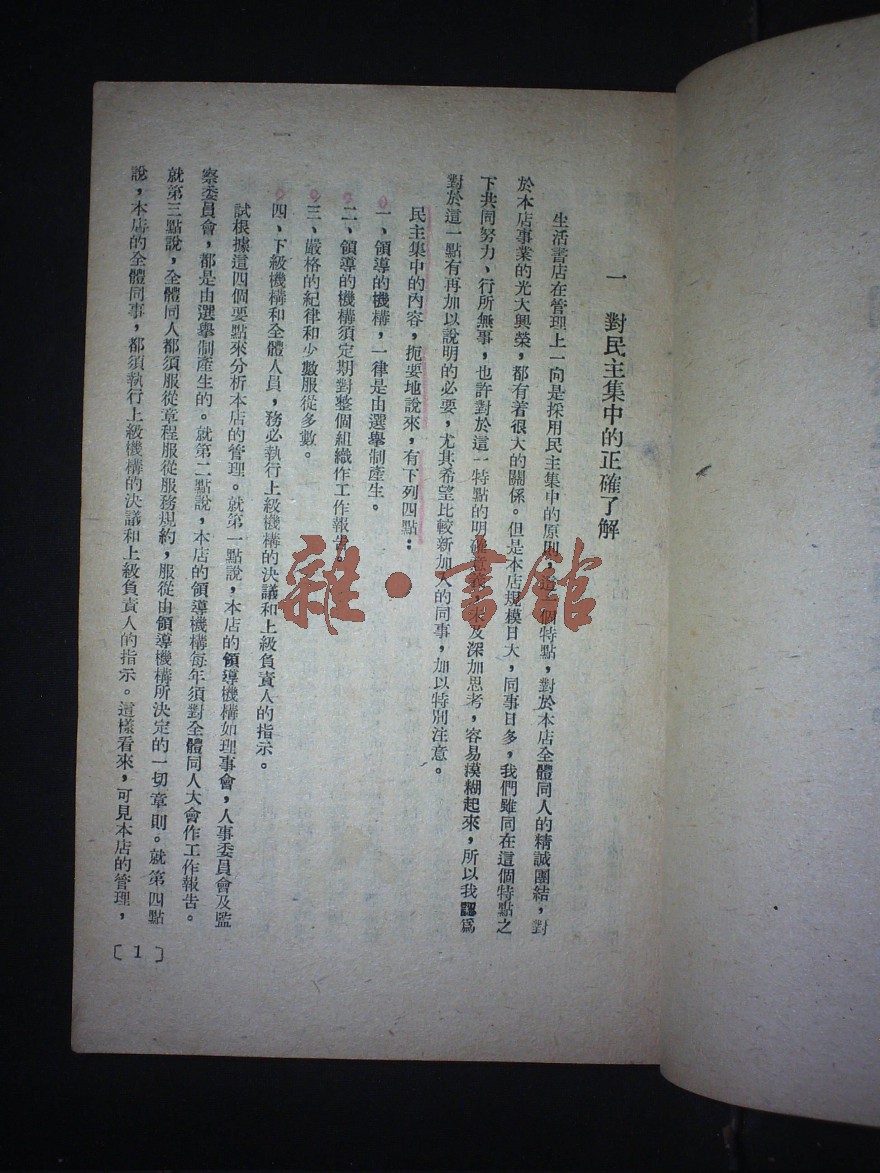 一 對民主集中的正確了解
生活書店在管理上一向是採用民主集中的原則，這個特點，對於本店全體同人的精誠團結，對
於本店事業的光大興榮，都有着很大的關係。但是本店規模日大，同事日多，我們雖同在這個特點之
下共同努力，行所無事，也許對於這一特點的明確意義未及深加思考，容易漠糊起來，所以我認爲
對於這一點有再加以說明的必要，尤其希望比較新加入的同事，加以特別注意。
民主集中的內容，扼要地說來，有下列四點：
一、領導的機構，一律是由選舉制產生。
二、領導的機構須定期對整個組織作工作報告。
三、嚴格的紀律和少數服從多數。
四、下級機構和全體人員，務必執行上級機構的決議和上級負責人的指示。
試根據這四個要點來分析本店的管理。就第一點說，本店的領導機構如理事會，人事委員會及監
察委員會，都是由選舉制產生的。就第二點說，本店的領導機構每年須對全體同人大會作工作報告。
就第三點說，全體同人都須服從章程服從服務規約，服從由領導機構所決定的一切章則。就第四點
說，本店的全體同事，都須執行上級機構的決議和上級負責人的指示。這樣看來，可見本店的管理，
一
〔1〕
雜·書館